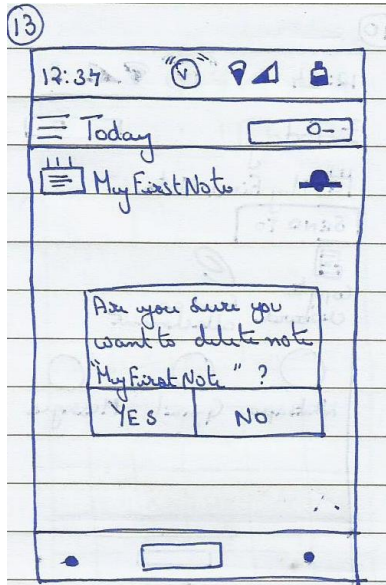 13
12:34
Today
MyFirstNote
Are you sure you
want to delete note
"MyFirstNote" ?
YES NO